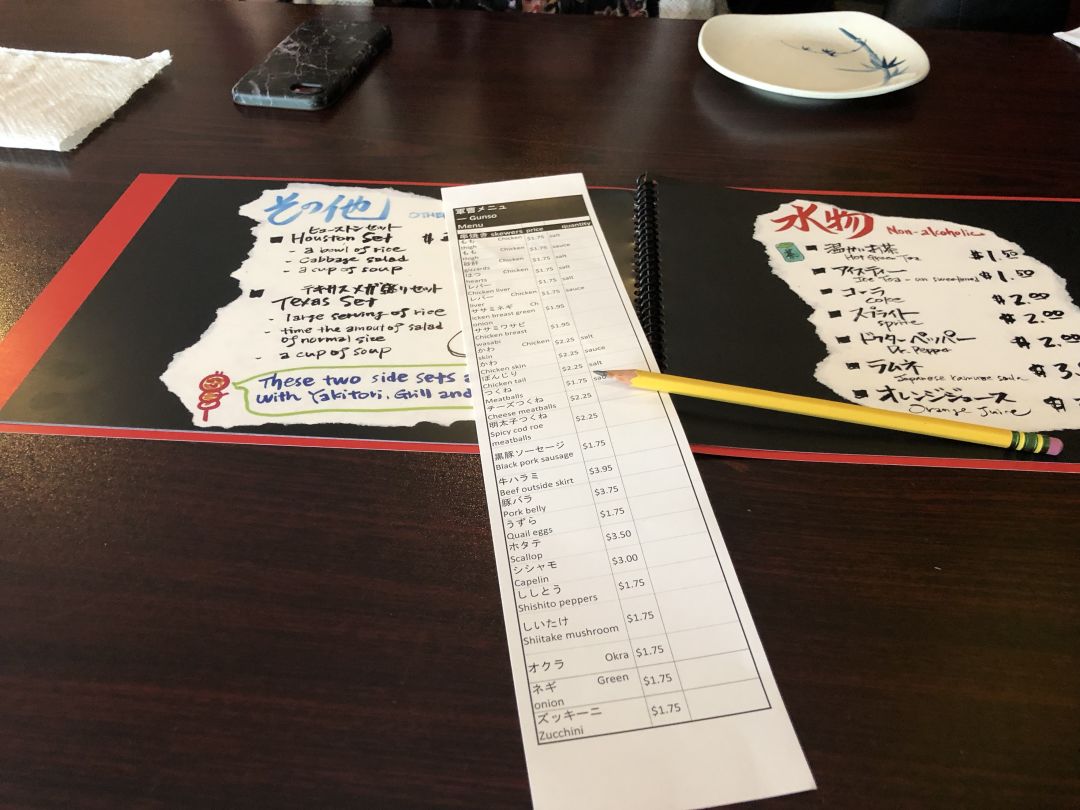 その他
OTHE
ヒューストンセット
Houston Set
- a bowl of rice
- cabbage salad
- a cup of soup
テキサスメガ盛りセット
Texas Set
- large serving of rice
- time the amout of salad
of normal size
- a cup of soup
These two side sets a
with Yakitori, Grill and
軍曹メニュ
ー Gunso
Menu
串焼き skewers price quantity
もも Chicken $1.75 salt
thigh
もも Chicken $1.75 sauce
thigh
砂肝 Chicken $1.75 salt
gizzards
はつ Chicken $1.75 salt
hearts
レバー $1.75 salt
Chicken liver
レバー Chicken $1.75 sauce
liver
ササミネギ Ch $1.95
icken breast green
onion
ササミワサビ $1.95
Chicken breast
wasabi
かわ Chicken $2.25 salt
skin
かわ $2.25 sauce
Chicken skin
ぼんじり $2.25 salt
Chicken tail
つくね $1.75
Meatballs
チーズつくね $2.25
Cheese meatballs
明太子つくね $2.25
Spicy cod roe
meatballs
黒豚ソーセージ $1.75
Black pork sausage
牛ハラミ $3.95
Beef outside skirt
豚バラ $3.75
Pork belly
うずら $1.75
Quail eggs
ホタテ $3.50
Scallop
シシャモ $3.00
Capelin
ししとう $1.75
Shishito peppers
しいたけ $1.75
Shiitake mushroom
オクラ Okra $1.75
ネギ Green $1.75
onion
ズッキーニ $1.75
Zucchini
水物 Non-alcoholic
茶
温かいお茶 $1.50
Hot Green Tea
アイスティー $1.50
Ice Tea - un sweetened
コーラ $2.00
coke
スプライト $2.00
sprite
ドクターペッパー $2.00
Dr. Pepper
ラムネ $3.
Japanese ramune soda
オレンジジュース $
Orange Juice